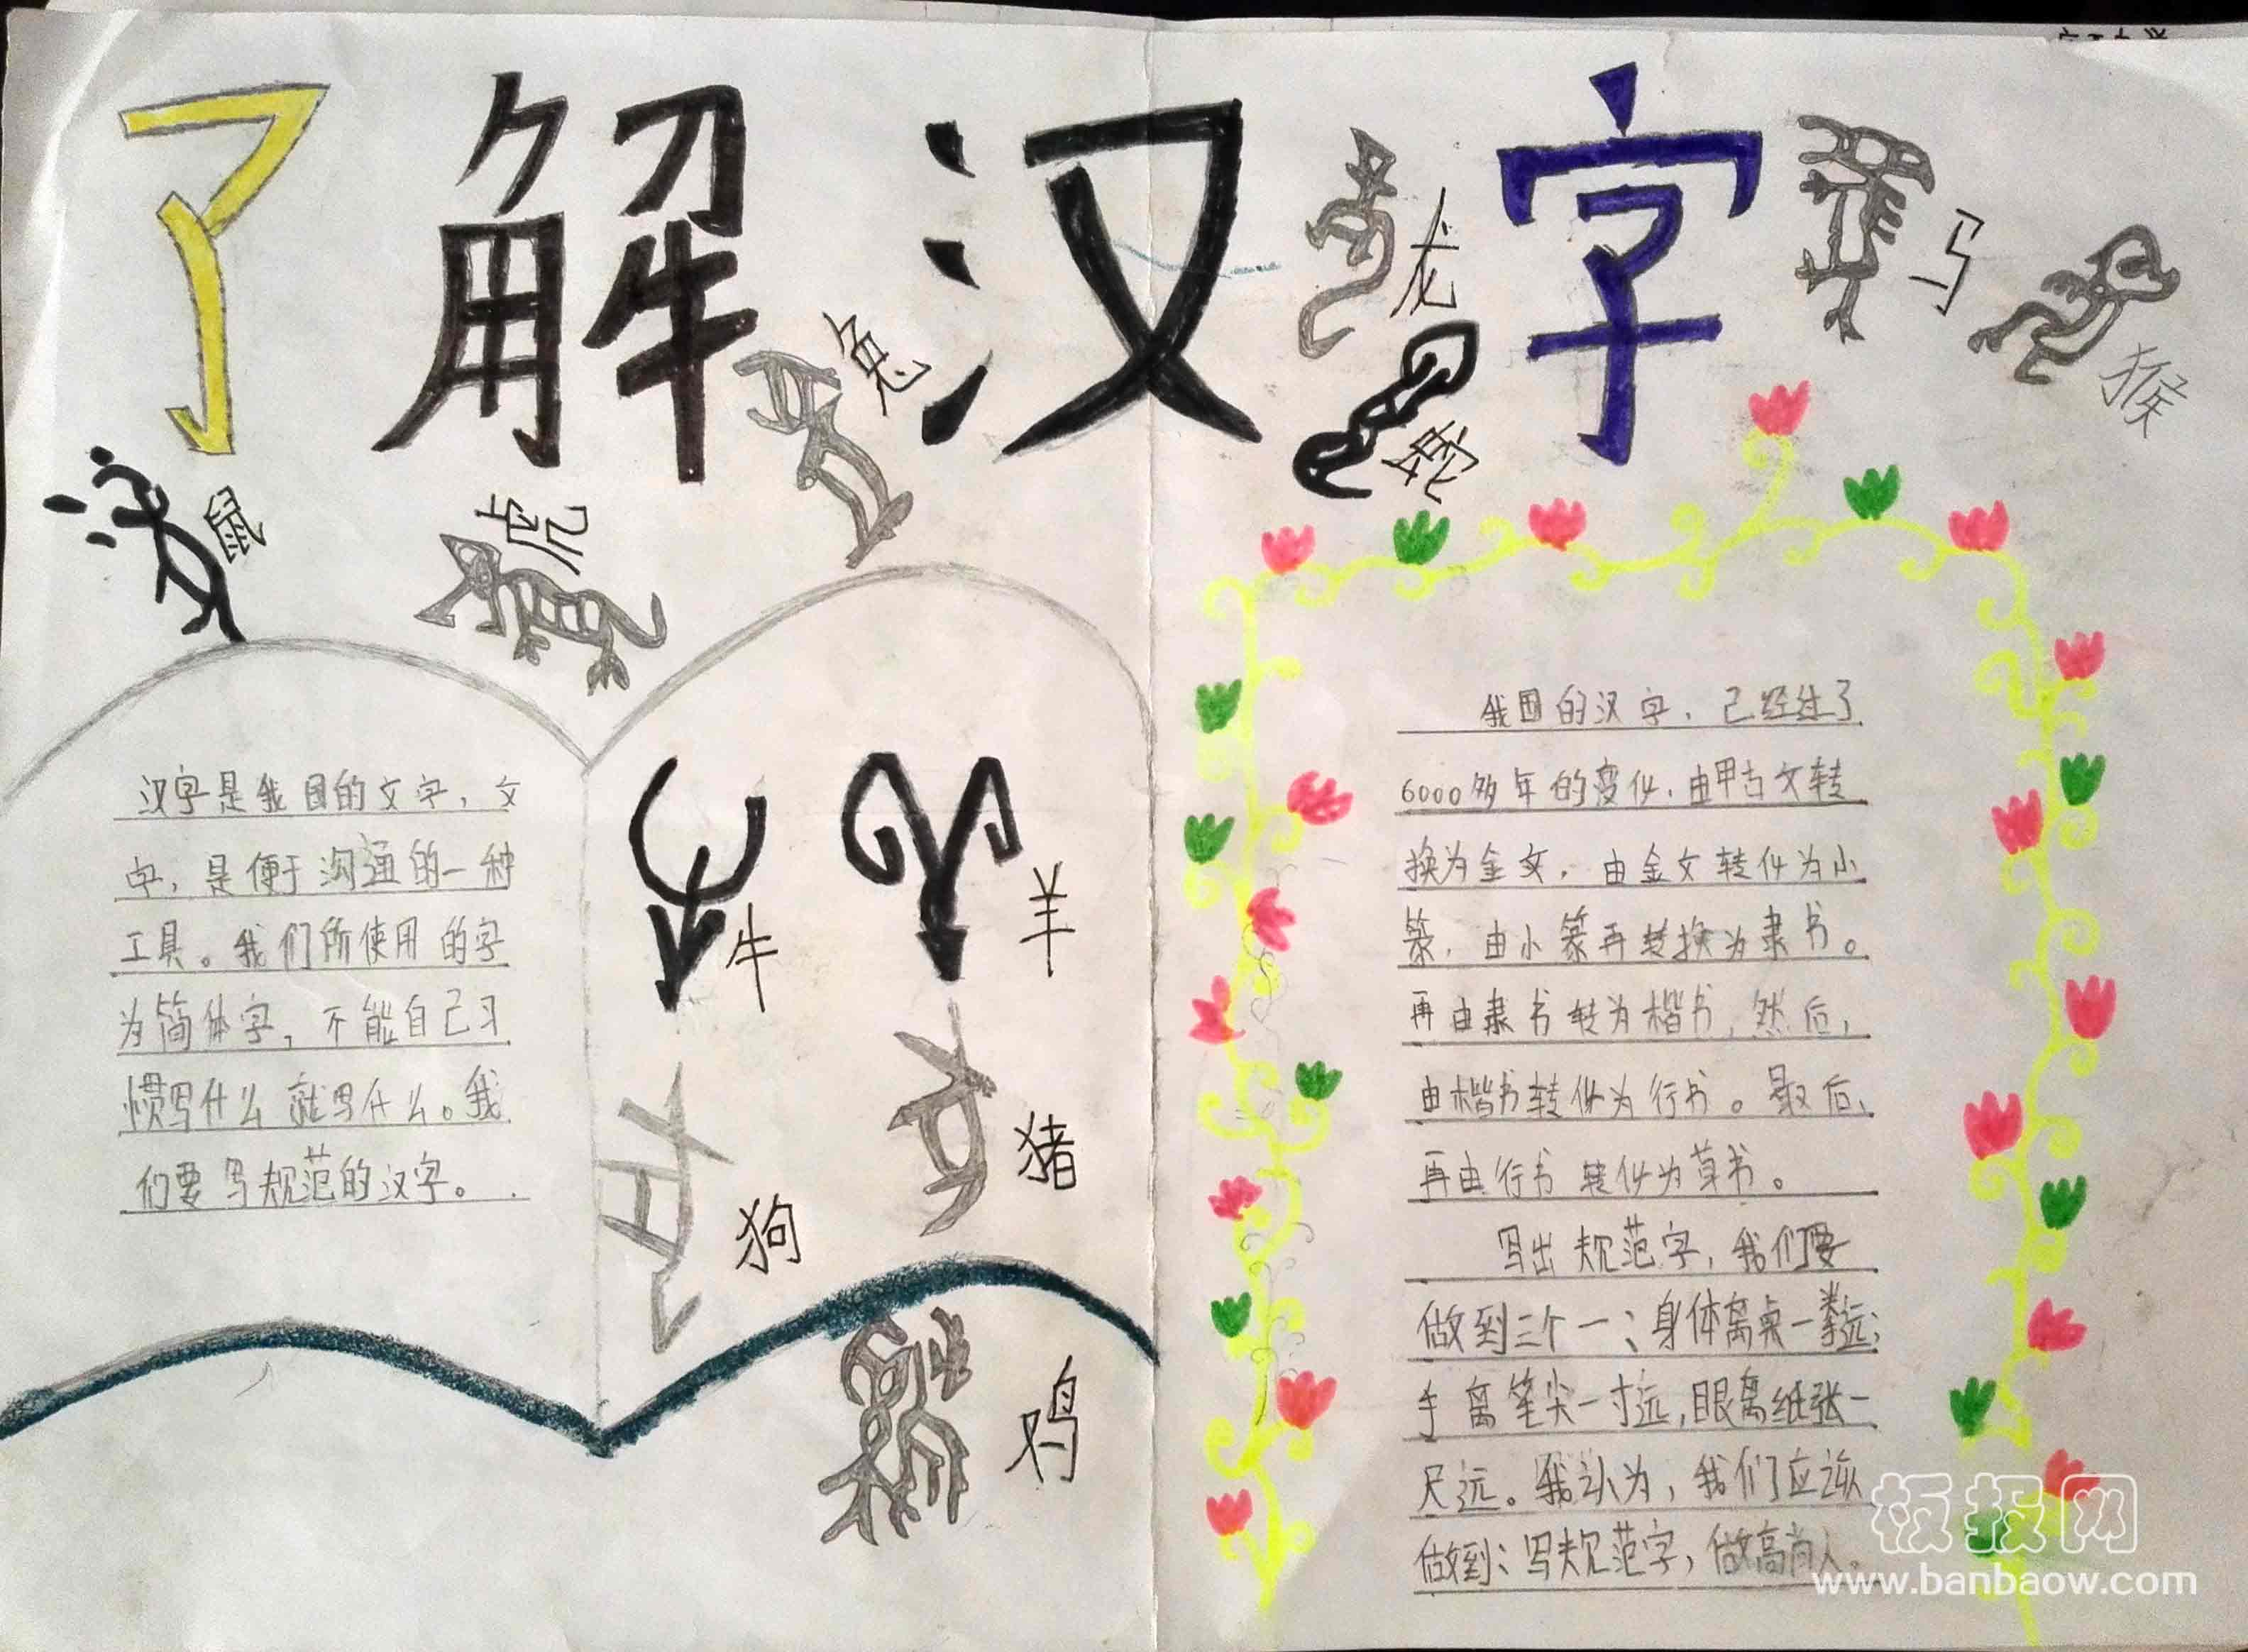 了解汉字
鼠
虎
兔
龙
蛇
马
猴
汉字是我国的文字，文
字，是便于沟通的一种
工具。我们所使用的字
为简体字，不能自己习
惯写什么就写什么。我
们要写规范的汉字。
牛
羊
猪
狗
鸡
我国的汉字，已经过了
6000多年的变化，由甲古文转
换为金文，由金文转化为小
篆，由小篆再转换为隶书。
再由隶书转为楷书，然后，
由楷书转化为行书。最后，
再由行书转化为草书。
写出规范字，我们要
做到三个一：身体离桌一拳远；
手离笔尖一寸远，眼离纸张一
尺远。我认为，我们应该
做到：写规范字，做高尚人。
板报网
www.banbaow.com